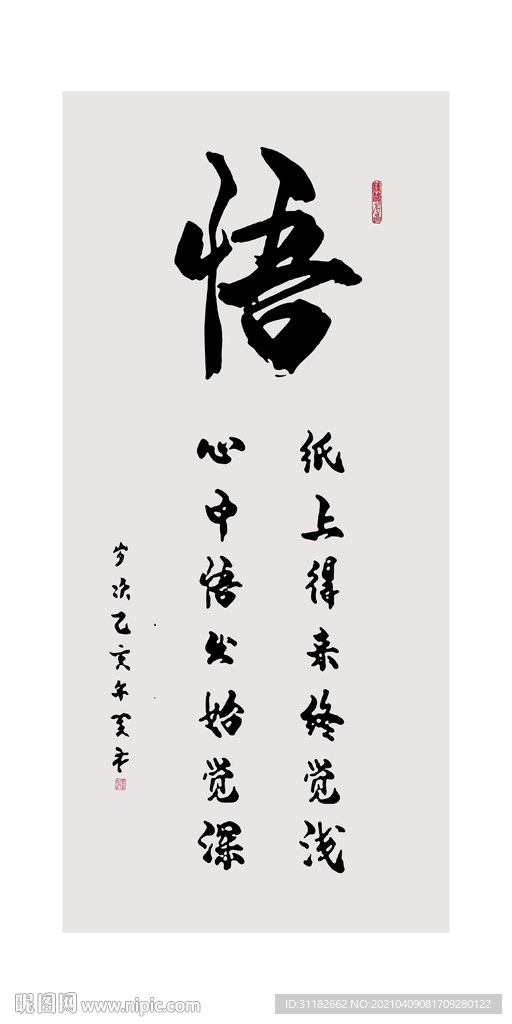 悟
纸上得来终觉浅
心中悟出始觉深
岁次乙亥年
昵图网 www.nipic.com
ID:31182662 NO:20210409081709280122